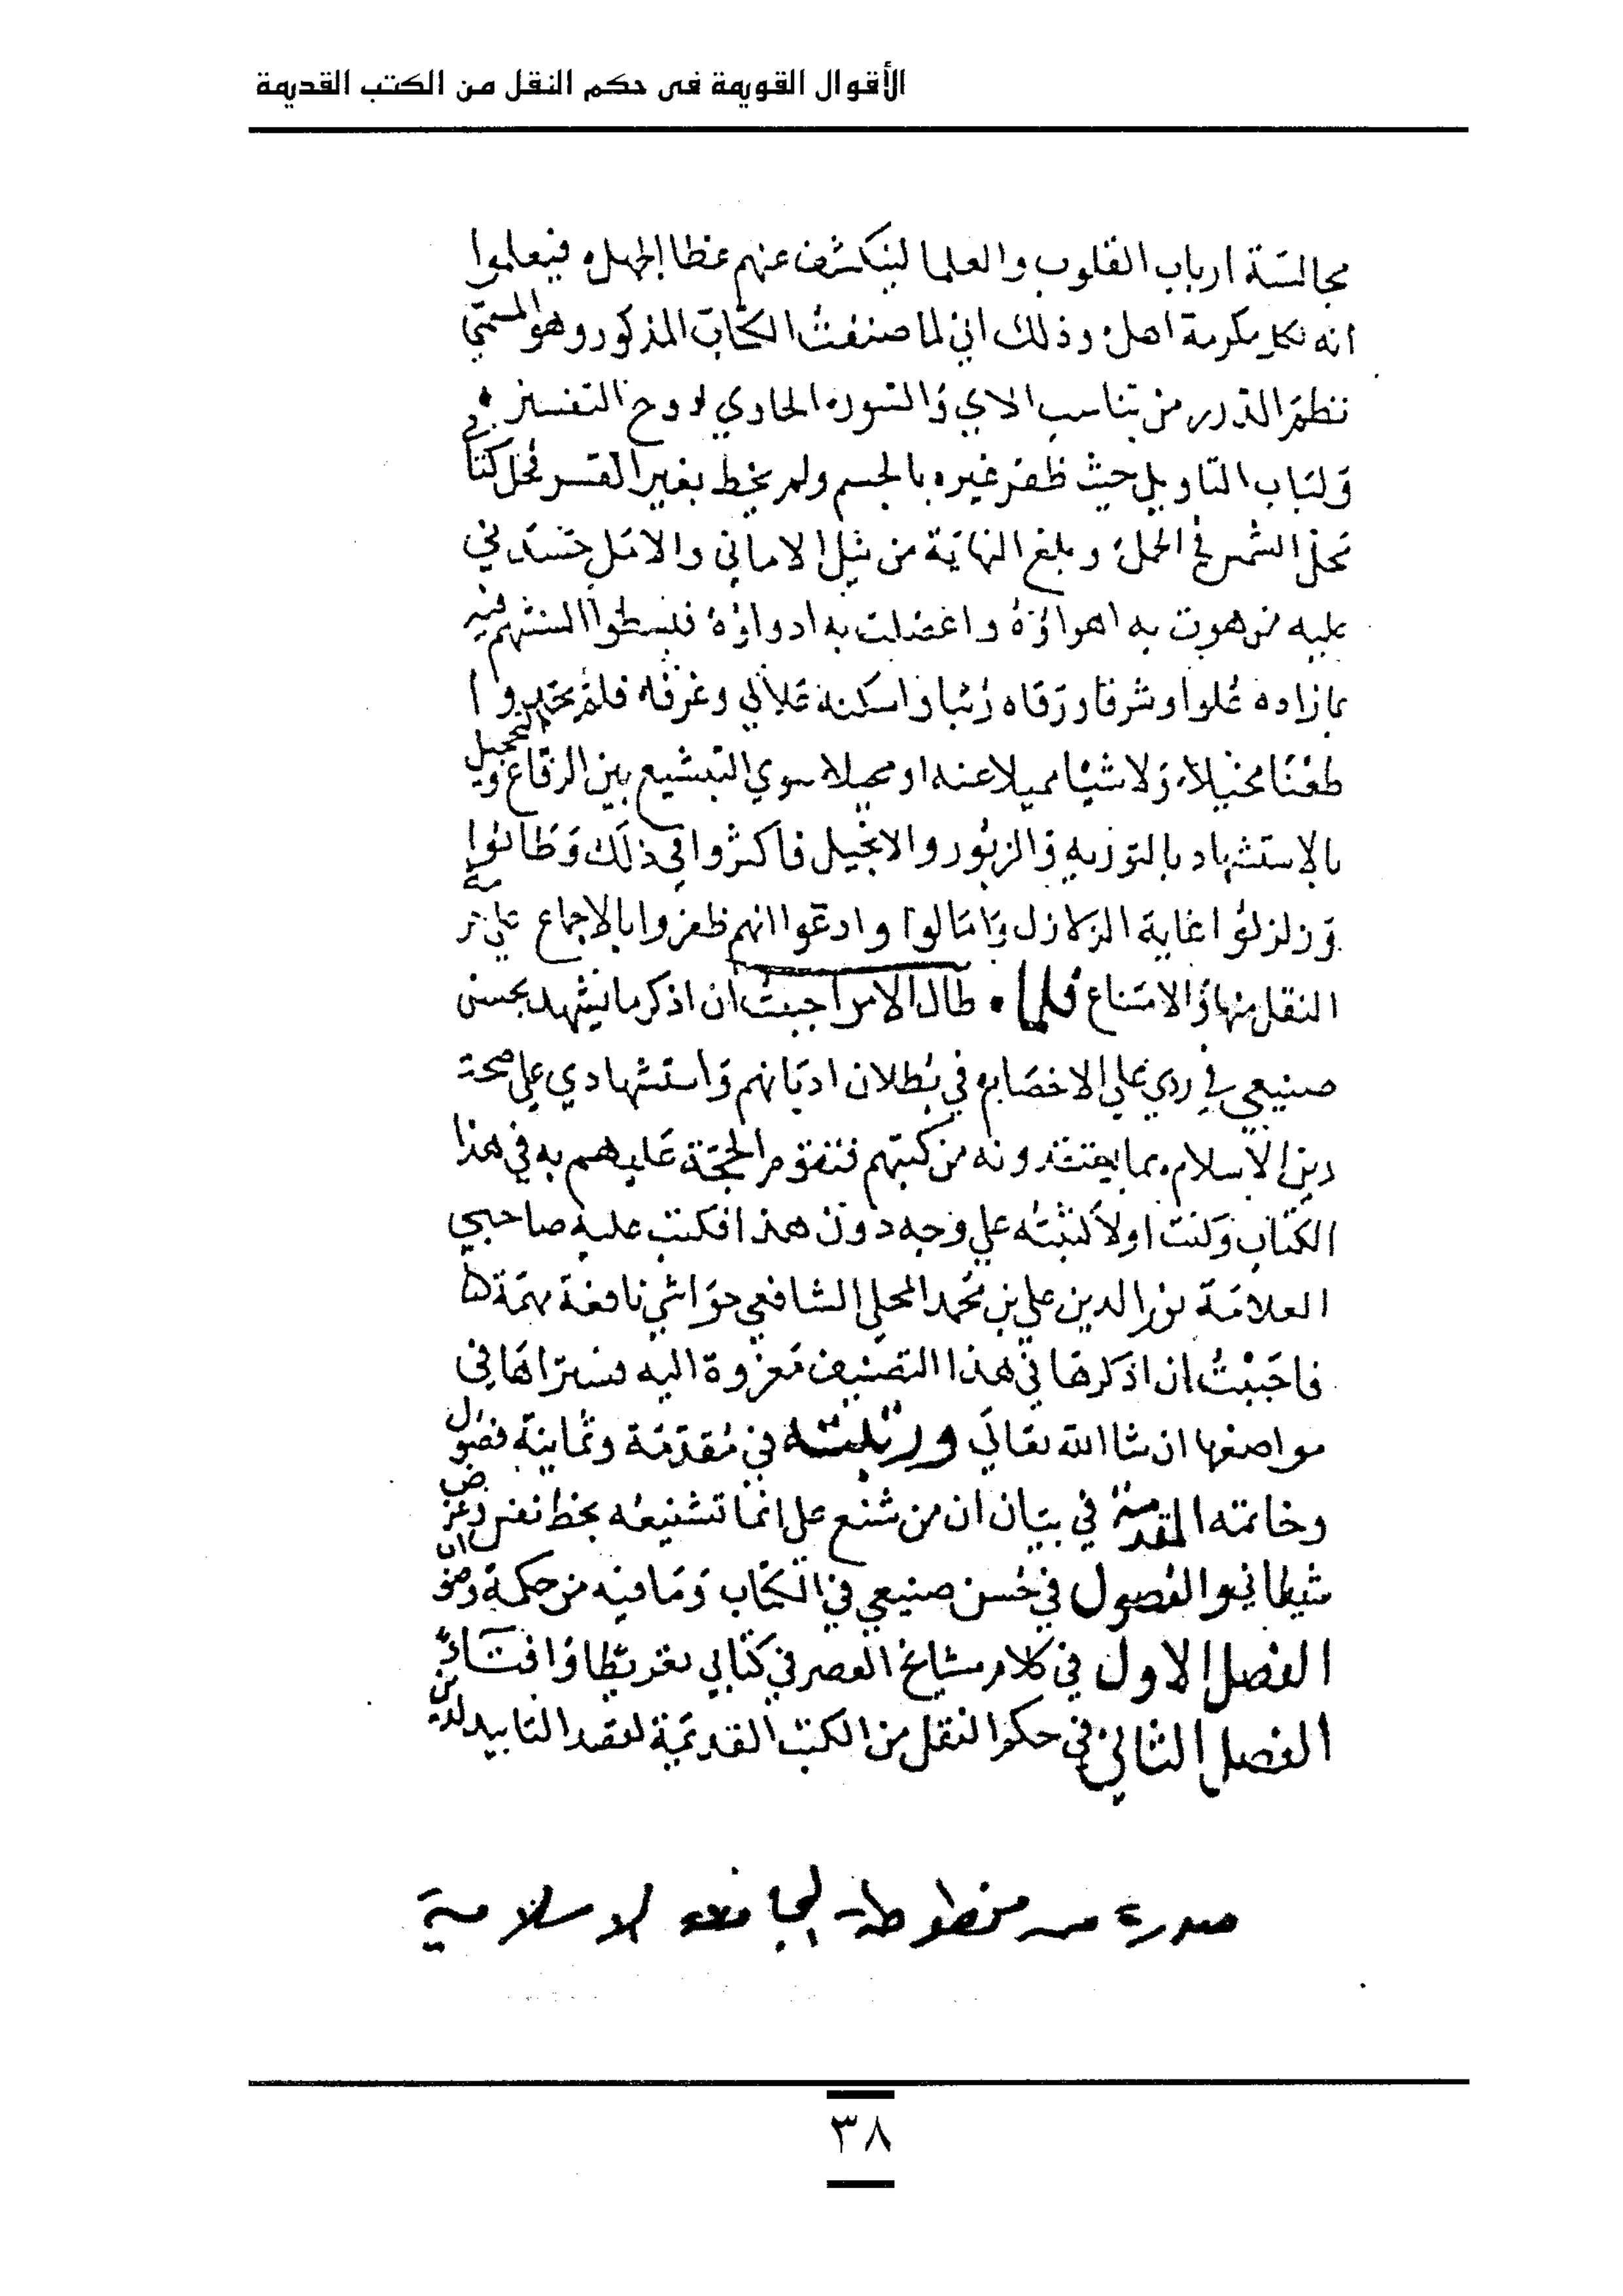 الأقوال القويمة فى حكم النقل من الكتب القديمة
مجالسة ارباب القلوب والعلما لينكشف عنهم غطا الجهل فيعلموا
انه لكل مكرمة اهل وذلك اني لما صنفت الكتاب المذكور وهو المسمى
نظم الدرر من تناسب الاي والسور الحاوي لروح التفسير
ولباب التاويل حيث ظفر غيره بالجسم ولم يحط بغير القسر فحل كتابي
محل الشمس في الحمل وبلغ النهاية من نيل الاماني والامل حسدني
عليه من هوت به اهواؤه واعضلت به ادواؤه فبسطوا السنتهم فيه
بما زاده علوا وشرفا ورقاه رتبا واسكنه علالي وغرفا فلم يجدوا
طعنا مخيلا ولا شيا مميلا عنه او محيلا سوي التشنيع بين الرعاع والتجهيل
بالاستشهاد بالتورىه والزبور والانجيل فاكثروا في ذلك وطالوا
وزلزلوا غاية الزلازل وامالوا وادعوا انهم ظفروا بالاجماع علي حرمة
النقل منها والامتناع فلما طال الامر احببت ان اذكر ما يشهد بحسن
صنيعي في ردي علي الاخصام في بطلان اديانهم واستشهادي علي صحة
دين الاسلام بما يعتقدونه من كتبهم فتقوم الحجة عليهم به في هذا
الكتاب وكنت اولا كتبته علي وجه دون هذا فكتب عليه صاحبي
العلامة نور الدين علي بن محمد المحلي الشافعي حواشي نافعة مهمة
فاحببت ان اذكرها في هذا التصنيف معزوة اليه ستراها في
مواضعها ان شا الله تعالي ورتبته في مقدمة وثمانية فصول
وخاتمه المقدمة في بيان ان من شنع علي انما تشنيعه بحظ نفس وغرض
شيطاني والفصول في حسن صنيعي في الكتاب وما فيه من حكمة وصواب
الفصل الاول في كلام مشايخ العصر في كتابي تقريظا وافتاء
الفصل الثاني في حكم النقل من الكتب القديمة لقصد التاييد لدين
صورة من مخطوطة الجامعة الاسلامية
٣٨